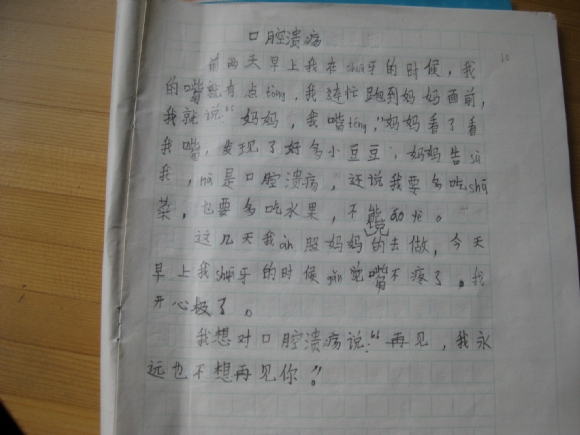 口腔溃疡
前两天早上我在shuā牙的时候，我
的嘴就有点téng，我连忙跑到妈妈面前，
我就说“妈妈，我嘴téng，”妈妈看了看
我嘴，发现了好多小豆豆，妈妈告sù
我，nà是口腔溃疡，还说我要多吃shū
菜，也要多吃水果，不能
这几天我àn照妈妈说的去做，今天
早上我shuā牙的时候gǎn觉嘴不疼了。我
开心极了。
我想对口腔溃疡说：“再见，我永
远也不想再见你！”
10